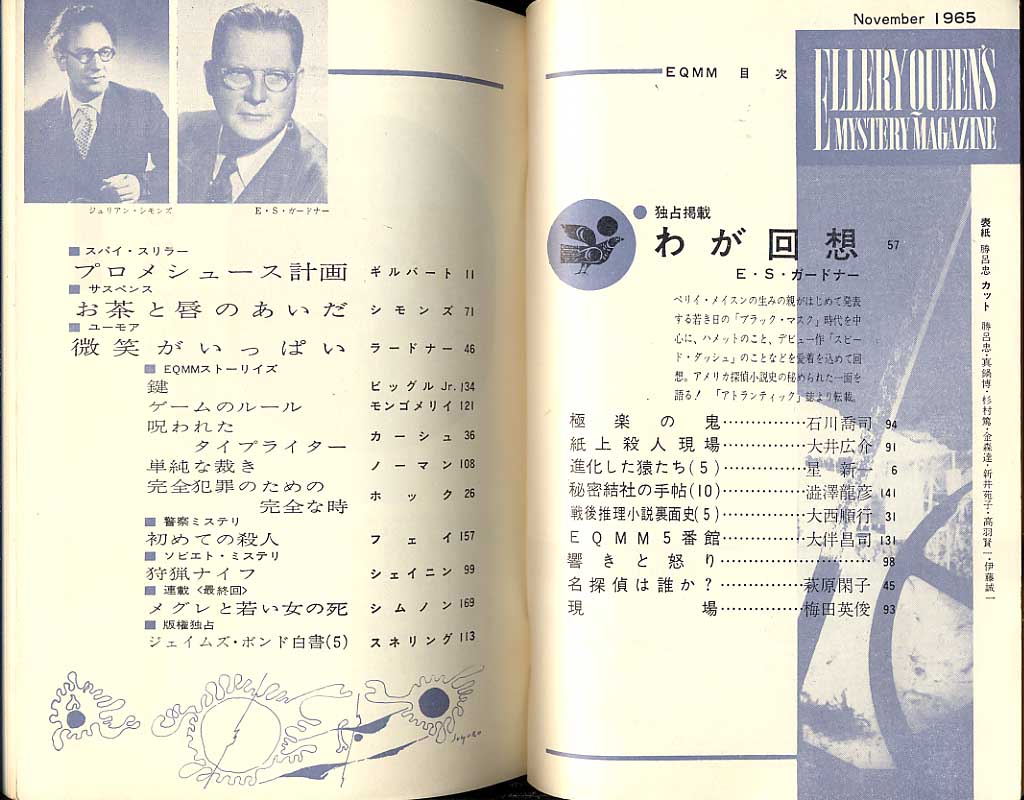 November 1965
EQMM 目次
ELLERY QUEEN'S
MYSTERY MAGAZINE
独占掲載
わが回想 57
E・S・ガードナー
ペリイ・メイスンの生みの親がはじめて発表
する若き日の「ブラック・マスク」時代を中
心に、ハメットのこと、デビュー作「スピー
ド・ダッシュ」のことなどを愛着を込めて回
想。アメリカ探偵小説史の秘められた一面を
語る! 「アトランティック」誌より転載。
極楽の鬼……………石川喬司 94
紙上殺人現場……………大井広介 91
進化した猿たち(5)……………星新一 6
秘密結社の手帖(10)……………澁澤龍彦 141
戦後推理小説裏面史(5)……………大西順行 31
EQMM5番館……………大伴昌司 131
響きと怒り…………………………98
名探偵は誰か?……………萩原閑子 45
現場……………梅田英俊 93
表紙 勝呂忠 カット 勝呂忠・真鍋博・杉村篤・金森達・新井苑子・高羽賢一・伊藤誠一
ジュリアン・シモンズ
E・S・ガードナー
スパイ・スリラー
プロメシュース計画 ギルバート 11
サスペンス
お茶と唇のあいだ シモンズ 71
ユーモア
微笑がいっぱい ラードナー 46
EQMMストーリイズ
鍵 ビッグルJr. 134
ゲームのルール モンゴメリイ 121
呪われた
タイプライター カーシュ 36
単純な裁き ノーマン 108
完全犯罪のための
完全な時 ホック 26
警察ミステリ
初めての殺人 フェイ 157
ソビエト・ミステリ
狩猟ナイフ シェイニン 99
連載〈最終回〉
メグレと若い女の死 シムノン 169
版権独占
ジェイムズ・ボンド白書(5) スネリング 113